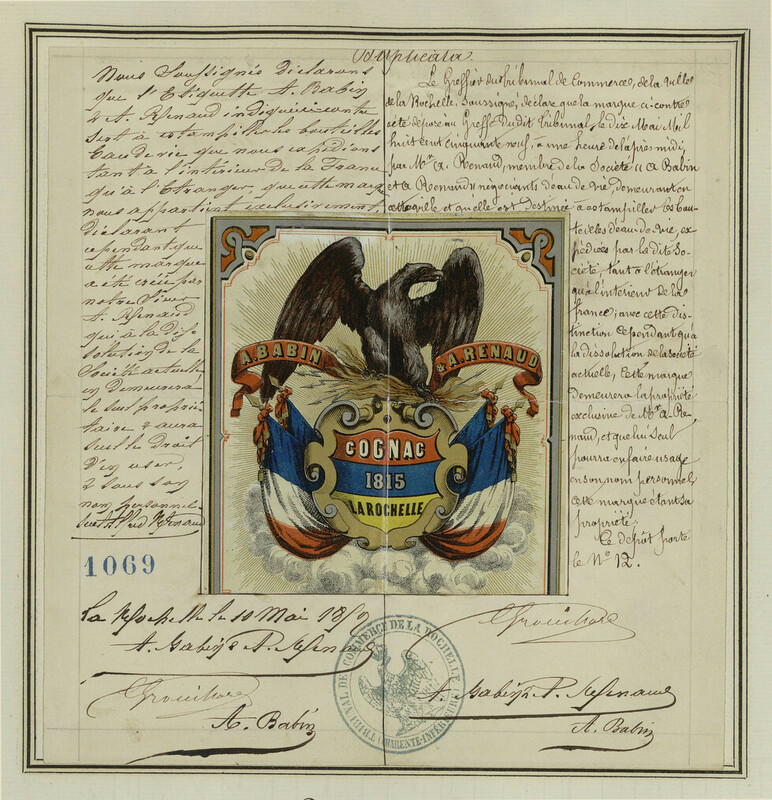 Duplicata
Nous Soussignés déclarons
que l'Etiquette A. Babin
& A. Renaud indiquée contre
sert à estampiller les bouteilles
Eau de vie que nous expédions
tant à l'intérieur de la France
qu'à l'Etranger, que cette marque
nous appartient exclusivement,
déclarant
cependant que
cette marque
a été créée par
notre Sieur
A. Renaud
qui à la disso
solution de la
Société actuelle
en demeurera
le seul proprié-
taire & aura
seul le droit
d'en user,
& sous son
nom personnel
seul Renaud
1069
La Rochelle le 10 Mai 1859
A. Babin & A. Renaud
A. Babin
Le Greffier du Tribunal de Commerce, de la Ville
de la Rochelle, Soussigné, déclare que la marque ci-contre
a été déposée au Greffe dudit Tribunal, le dix Mai Mil
huit cent cinquante neuf, à une heure de l'après midi,
par Mr. A. Renaud, membre de la Société "A Babin
et A Renaud" négociants d'eau de vie, demeurant en
cette ville et qu'elle est destinée à estampiller les bou-
teilles d'eau-de-vie, ex-
pédiées par la dite So-
ciété, tant à l'étranger
qu'à l'intérieur de la
france; avec cette dis-
tinction cependant qu'à
la dissolution de la société
actuelle, cette marque
demeurera la propriété
exclusive de Mr. A. Re-
naud, et que lui seul
pourra en faire usage
en son nom personnel,
cette marque étant sa
propriété.
Ce dépôt porte
le No 12.
A. Babin & A. Renaud
A. Babin
A. BABIN
& A. RENAUD
COGNAC
1815
LA ROCHELLE
TRIBUNAL DE COMMERCE DE LA ROCHELLE
(CHARENTE-INFÉRIEURE)